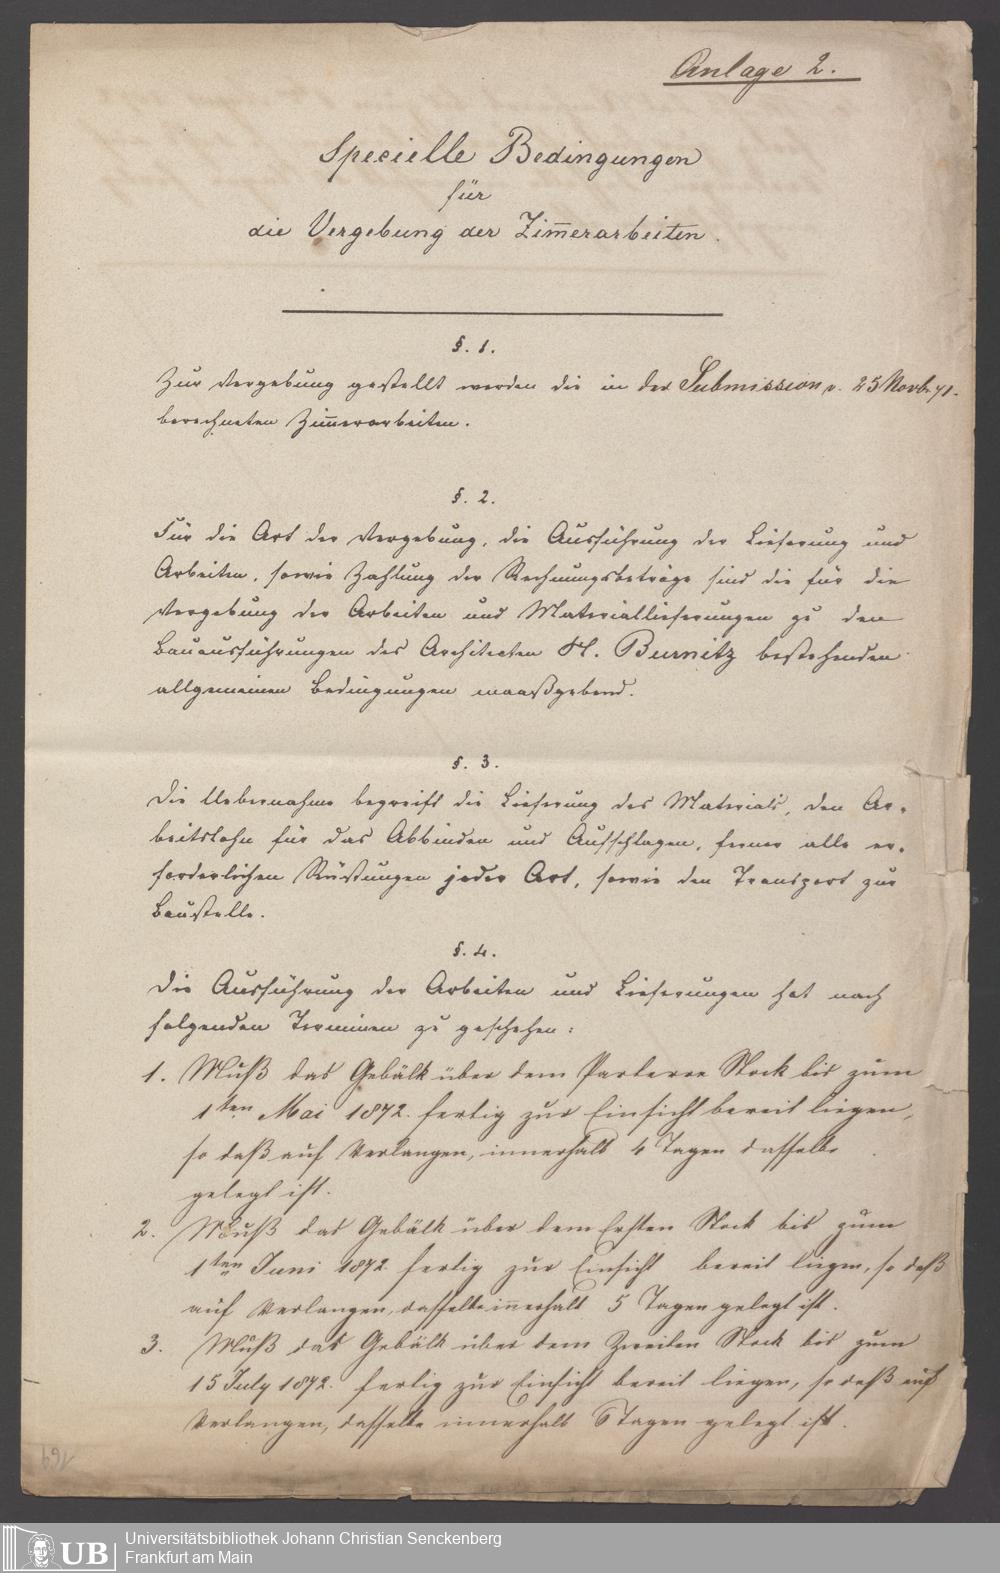 Anlage 2.
Specielle Bedingungen
für
die Vergebung der Zim̅erarbeiten.
§. 1.
Zur Vergebung gestellt werden die in der Submission v. 25 Novbr 71.
berechneten Zim̅erarbeiten.
§. 2.
Für die Art der Vergebung, die Ausführung der Lieferung und
Arbeiten, sowie Zahlung der Rechnungsbeträge sind die für die
Vergebung der Arbeiten und Materiallieferungen zu den
Bauausführungen des Architecten H. Burnitz bestehenden
allgemeinen Bedingungen maaßgebend.
§. 3.
Die Uebernahme begreift die Lieferung des Materials, den Ar-
beitslohn für das Abbinden und Aufschlagen, ferner alle er-
forderlichen Rüstungen jeder Art, sowie den Transport zur
Baustelle.
§. 4.
Die Ausführung der Arbeiten und Lieferungen hat nach
folgenden Terminen zu geschehen:
1. Muß das Gebälk über dem Parterre Stock bis zum
1ten Mai 1872. fertig zur Einsicht bereit liegen,
so daß auf Verlangen, innerhalb 4 Tagen dasselbe
gelegt ist.
2. Muß das Gebälk über dem Ersten Stock bis zum
1ten Juni 1872. fertig zur Einsicht bereit liegen, so daß
auf Verlangen, dasselbe in̅erhalb 5 Tagen gelegt ist.
3. Muß das Gebälk über dem Zweiten Stock bis zum
15 July 1872. fertig zur Einsicht bereit liegen, so daß auf
Verlangen, dasselbe innerhalb 6 Tagen gelegt ist.
169
UB
Universitätsbibliothek Johann Christian Senckenberg
Frankfurt am Main